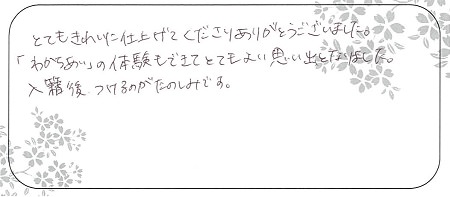 とてもきれいに仕上げてくださりありがとうございました。
「わかちあい」の体験もできてとてもよい思い出となりました。
入籍後つけるのがたのしみです。